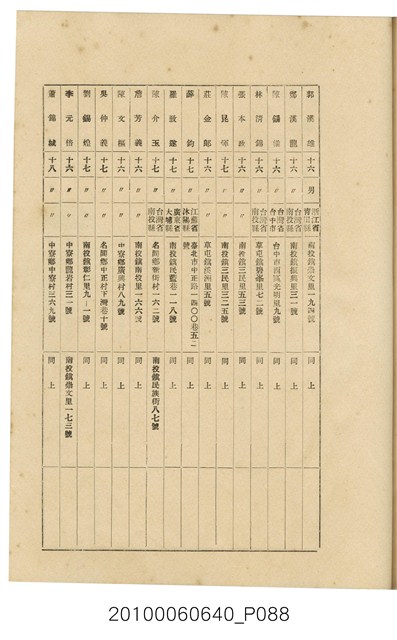 郭 漢 雄 十六 男 浙江省青田縣 南投鎮崇文里一九四號 同上
鄭 漢 龍 十六 〃 台灣省南投縣 南投鎮振興里三一號 同上
陳 錫 十六 〃 台灣省台中市 台中市西區光明里九號 同上
林 清 錦 十六 〃 台灣省南投縣 草屯鎮碧峯里七二號 同上
張 本 十六 〃 〃 南投鎮三民里五三號 同上
陳 昆 輝 十七 〃 〃 南投鎮三民里三二五號 同上
莊 金 郎 十六 〃 〃 草屯鎮 里五號 同上
薛 鈞 十七 〃 江蘇省沐陽縣 臺北市中正路一四〇〇巷五二號 同上
羅 致 遠 十七 〃 廣東省大埔縣 南投鎮民藍巷一一八號 同上
陳 介 玉 十七 〃 台灣省南投縣 名間鄉新街村一六二號 南投鎮民族街八七號
詹 芳 義 十六 〃 〃 南投鎮南投里一六六號 同上
陳 文 樞 十六 〃 〃 中寮鄉廣興村八九號 同上
吳 仲 義 十七 〃 〃 名間鄉中正村下灣巷十號 同上
劉 錫 煌 十七 〃 〃 南投鎮彰仁里九-一號 同上
李 元 倍 十六 〃 〃 中寮鄉龍岩村三一號 南投鎮崇文里一七三號
蕭 錦 城 十八 〃 〃 中寮鄉中寮村三六九號 同上
20100060640_P088